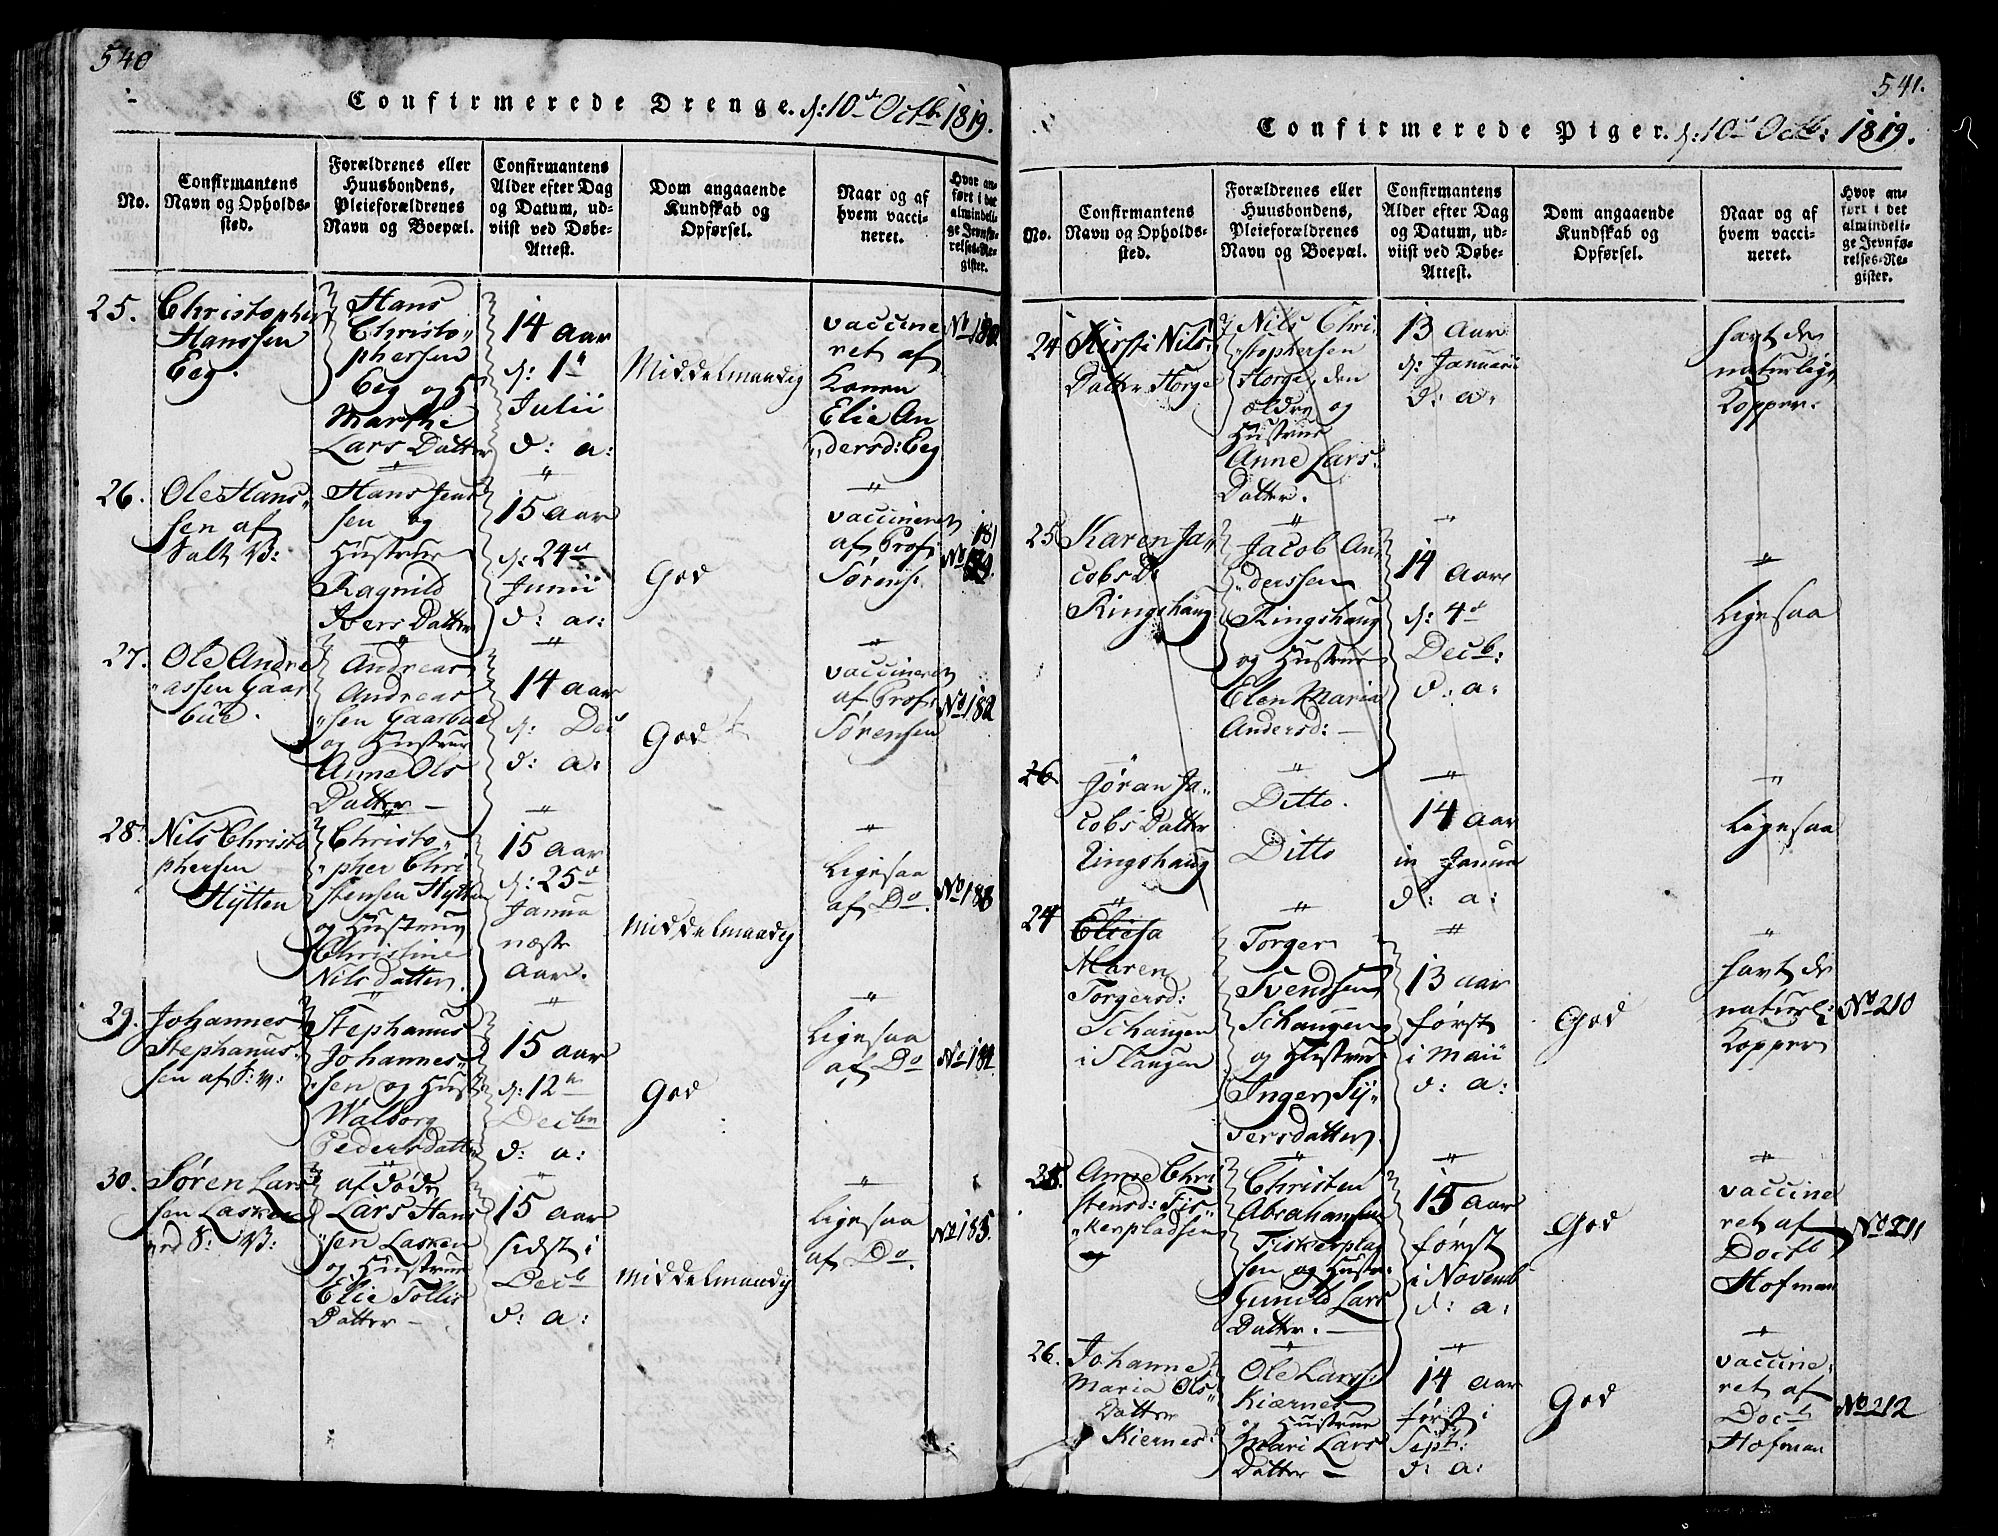 540
Confirmerede Drenge. d: 10de Octb. 1819.
No.
Confirmantens
Navn og Opholds-
sted.
Forældrenes eller
Huusbondens,
Pleieforældrenes
Navn og Boepæl.
Confirmantens
Alder efter Dag
og Datum, ud-
viist ved Døbe-
Attest.
Dom angaaende
Kundskab og
Opførsel.
Naar og af
hvem vacci-
neret.
Hvor an-
ført i det
almindeli-
ge Jevnfø-
relses-Re-
gister.
25.
Christopher
Hanssen
Eeg.
Hans
Christo"
phersen
Eeg og H
Marthe
Lars Datter
14 Aar
d: 1
Julii
d: a:
Middelmaadig
vaccine
ret af
Konen
Elie An
"dersd: Eeg
No 180.
26.
Ole Hans"
sen af
Valt B:
Hans Jens
sen og
Hustrue
Ragnild
Ivers Datter
15 Aar
d: 24de
Junii
d: a:
God
vaccineret
af Prof:
Sørens:
181
No
27.
Ole Andre
"assen Gaar
bue.
Andreas
Andreas
"sen Gaarbue
og Hustrue
Anne Ols
Datter —
14 Aar
d: Dec
d: a:
God
vaccineret
af Prof:
Sørensen
No 182
28.
Nils Christo
phersen
Hÿtten
Christo"
"pher Chri
stensen Hytten
og Hustrue
Christine
Nils Datter.
15 Aar
d: 25de
Janua
næste
Aar.
Middelmaadig
Ligesaa
af Do.
No 183
29.
Johannes
Stephanus"
sen af
Stephanus
Johannes"
sen og Hust
Walborg
Pedersdatter
15 Aar
d: 12te
Decbr
d: a:
God
Ligesaa
af Do
No 184
30.
Søren Lars
sen Lasken
afdøde
Lars Hans
"sen Lasken
og Hustrue
Elie Tollis
Datter —
15 Aar
sidst i
Decb
d: a:
Middelmaadig
Ligesaa
af Do.
No 185.
541.
Confirmerede Piger. d: 10de Octb: 1819.
No.
Confirmantens
Navn og Opholds-
sted.
Forældrenes eller
Huusbondens,
Pleieforældrenes
Navn og Boepæl.
Confirmantens
Alder efter Dag
og Datum, ud-
viist ved Døbe-
Attest.
Dom angaaende
Kundskab og
Opførsel.
Naar og af
hvem vacci-
neret.
Hvor an-
ført i det
almindeli-
ge Jevnfø-
relses-Re-
gister.
24
Kirsti Nils"
Datter Horge
Nils Chri
"stophersen
Horge, den
ældre og
Hustrue
Anne Lars:
Datter.
13 Aar
d: Januarii
d: a:
havt de
naturlige
Kopper.
25
Karen Ja"
cobs D:
Ringshaug
Jacob An"
"derssen
Ringshaug
og Hustrue
Elen Maria
Andersd: —
14 Aar
d: 4de
Decb:
d: a:
Ligesaa
26
Jøran Ja"
cobs Datter
Ringshaug
Ditto.
Ditto
14 Aar
in Janua
d: a:
Ligesaa
24
Maren
Torgersd:
Schaugen
i Slaugen
Torger
Svendsen
Schaugen
og Hustrue
Inger Sÿ"
versdatter.
13 Aar
først
i Maii
d: a:
God
havt de
naturl:
Kopper
No 210
25.
Anne Chri
stensd: Fis"
"kerpladsen
Christen
Abrahamsen
Fiskerplad
sen og Hustr:
Gunild Lars
Datter. —
15 Aar
først
i Novemb
d: a:
God
vaccine
ret af
Doctb
Hofman
No 211
26.
Johanne
Maria Ols"
Datter
Kiernes:
Ole Larss:
Kiærnes
og Hustrue
Mari Lars
Datter —
14 Aar
først i
Septb:
d: a:
God
vaccine
ret af
Doctb
Hofman
No 212